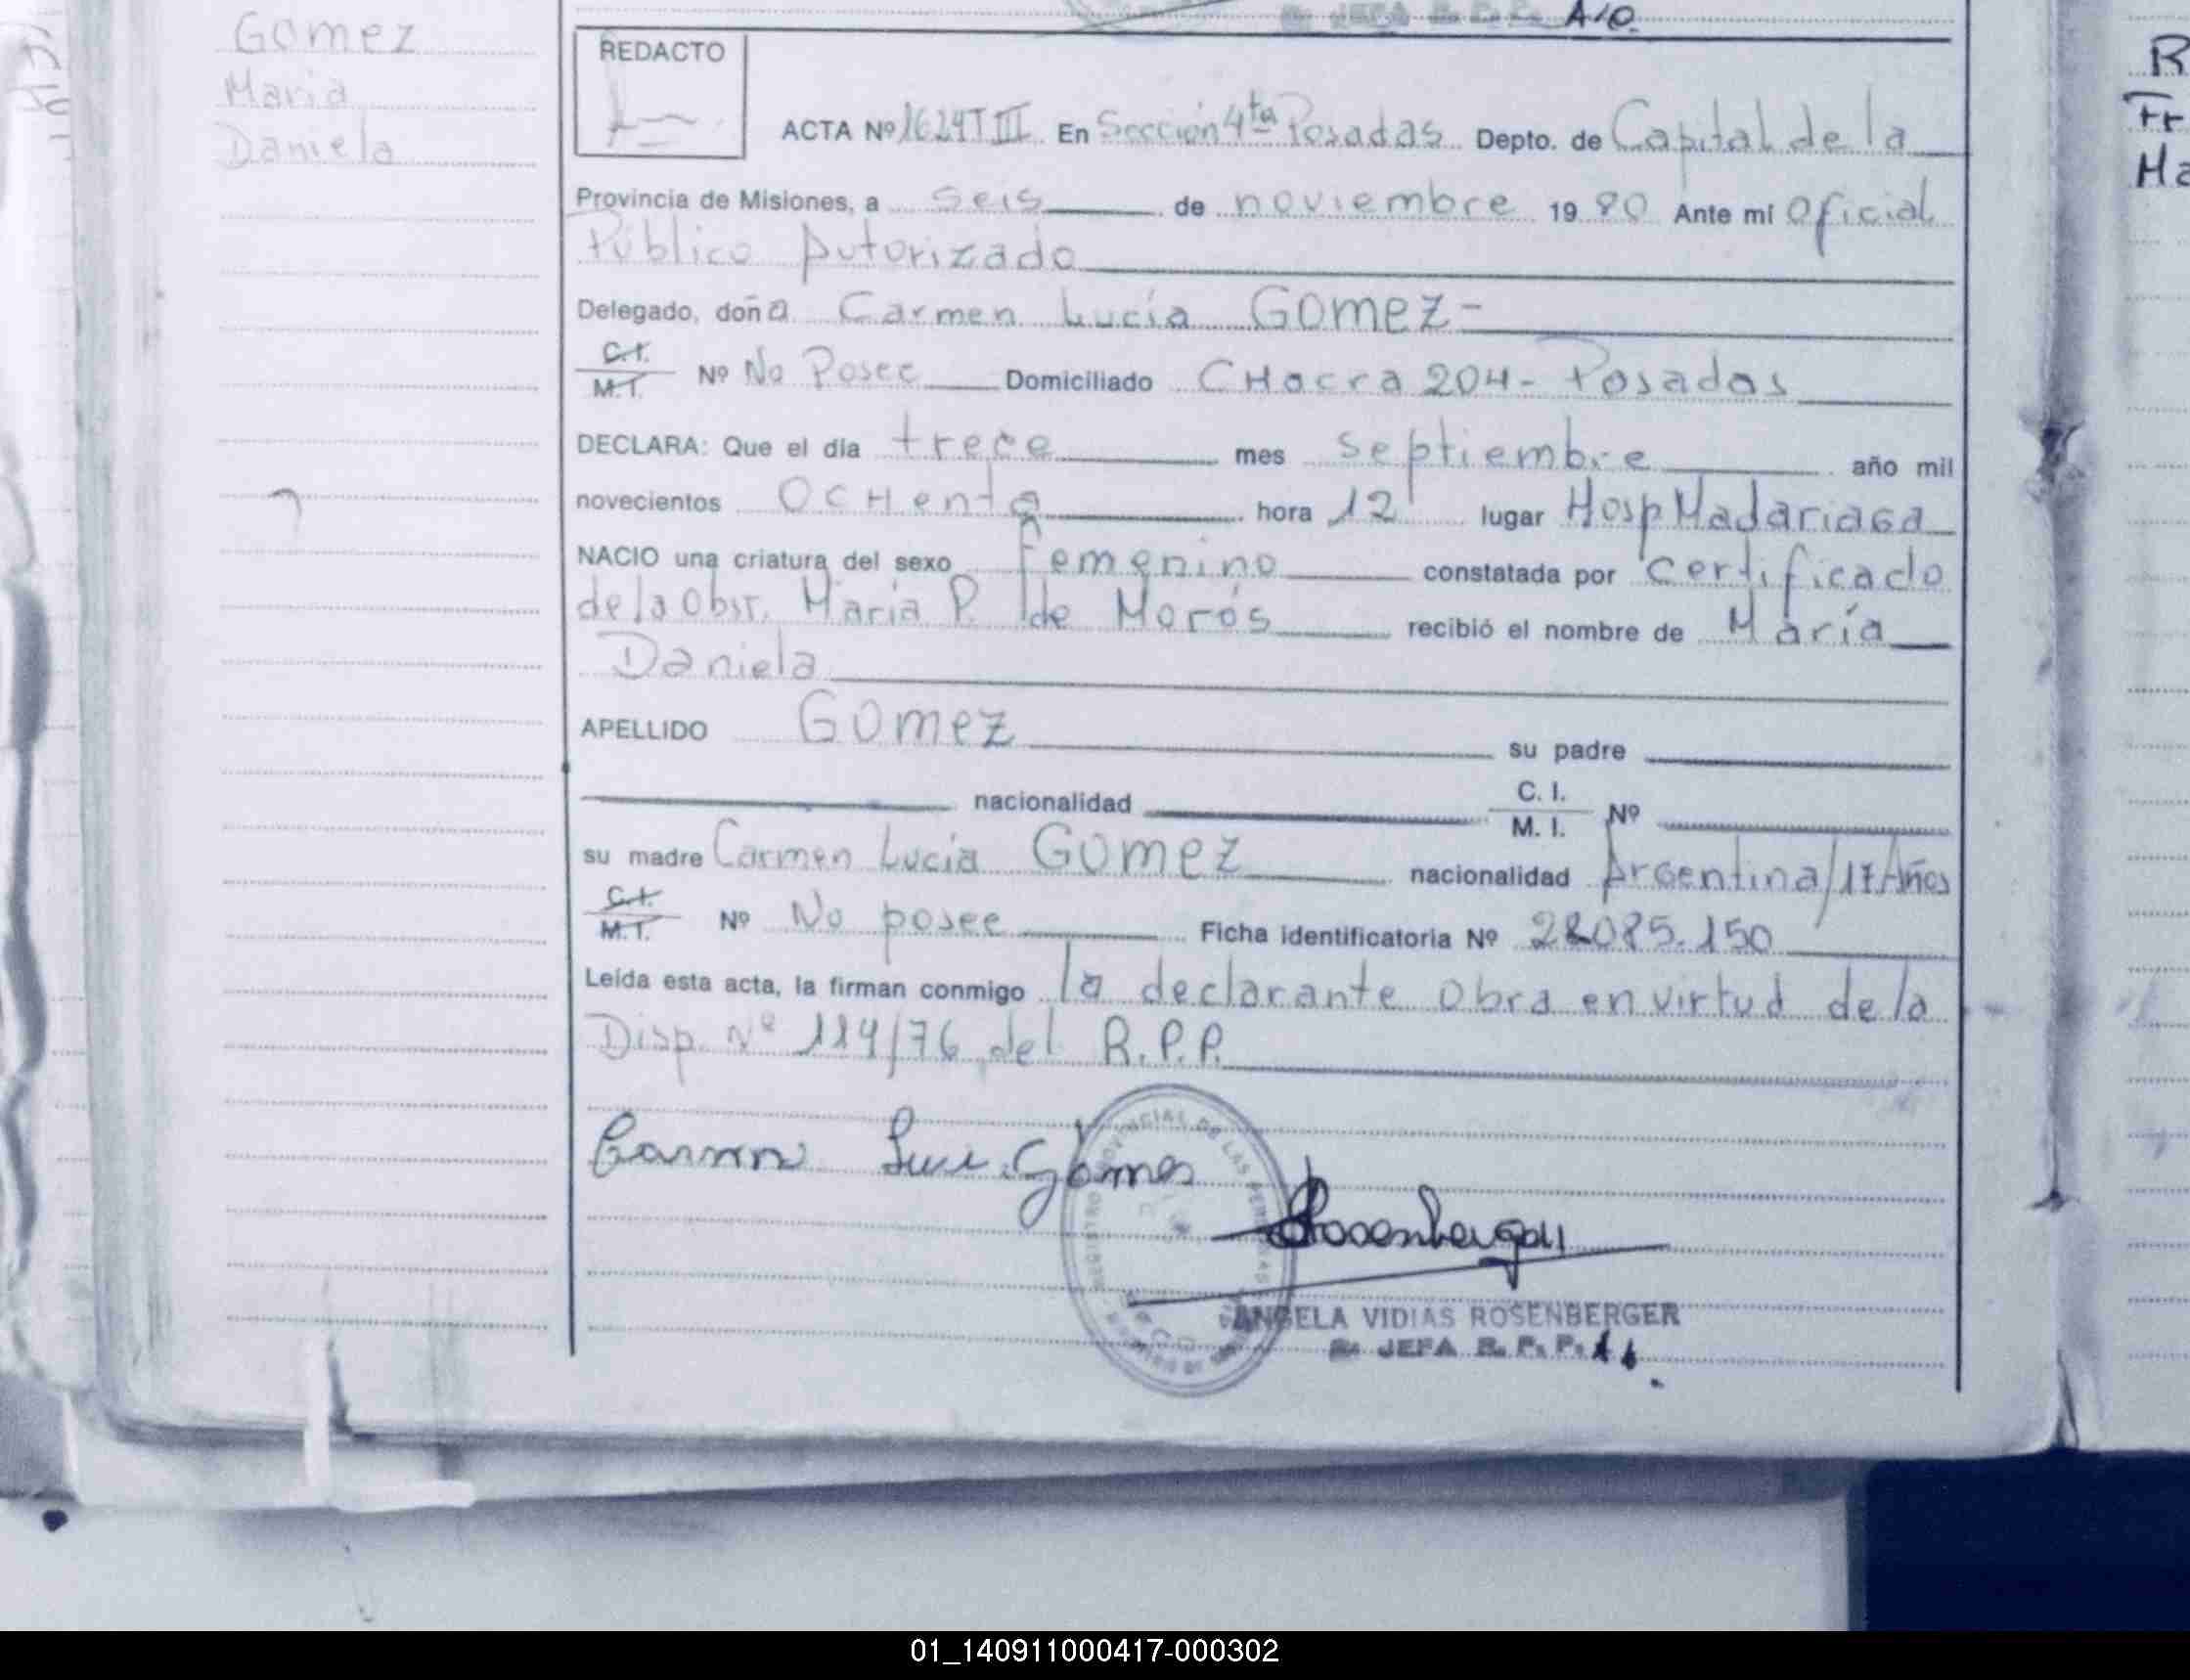 Gomez
Maria
Daniela
JEFA R. P. P. A/C.
REDACTO
ACTA Nº 1624 T III En Sección 4ta Posadas Depto. de Capital de la
Provincia de Misiones, a seis de noviembre 1980 Ante mí Oficial
Público Autorizado
Delegado, doña Carmen Lucía GOMEZ-
C.I. M.I. Nº No Posee Domiciliado CHacra 204- Posadas
DECLARA: Que el día trece mes septiembre año mil
novecientos OCHenta hora 12 lugar Hosp Madariaga
NACIO una criatura del sexo femenino constatada por certificado
de la Obst. María P. de Morós recibió el nombre de María
Daniela
APELLIDO GOMEZ su padre
nacionalidad C. I. M. I. Nº
su madre Carmen Lucía GOMEZ nacionalidad Argentina/17 Años
C.I. M.I. Nº No posee Ficha identificatoria Nº 28085.150
Leída esta acta, la firman conmigo la declarante Obra en virtud de la
Disp. Nº 114/76 del R.P.P.
Gomes
Rosenberger
ANGELA VIDIAS ROSENBERGER
JEFA R. P. P.
01_140911000417-000302